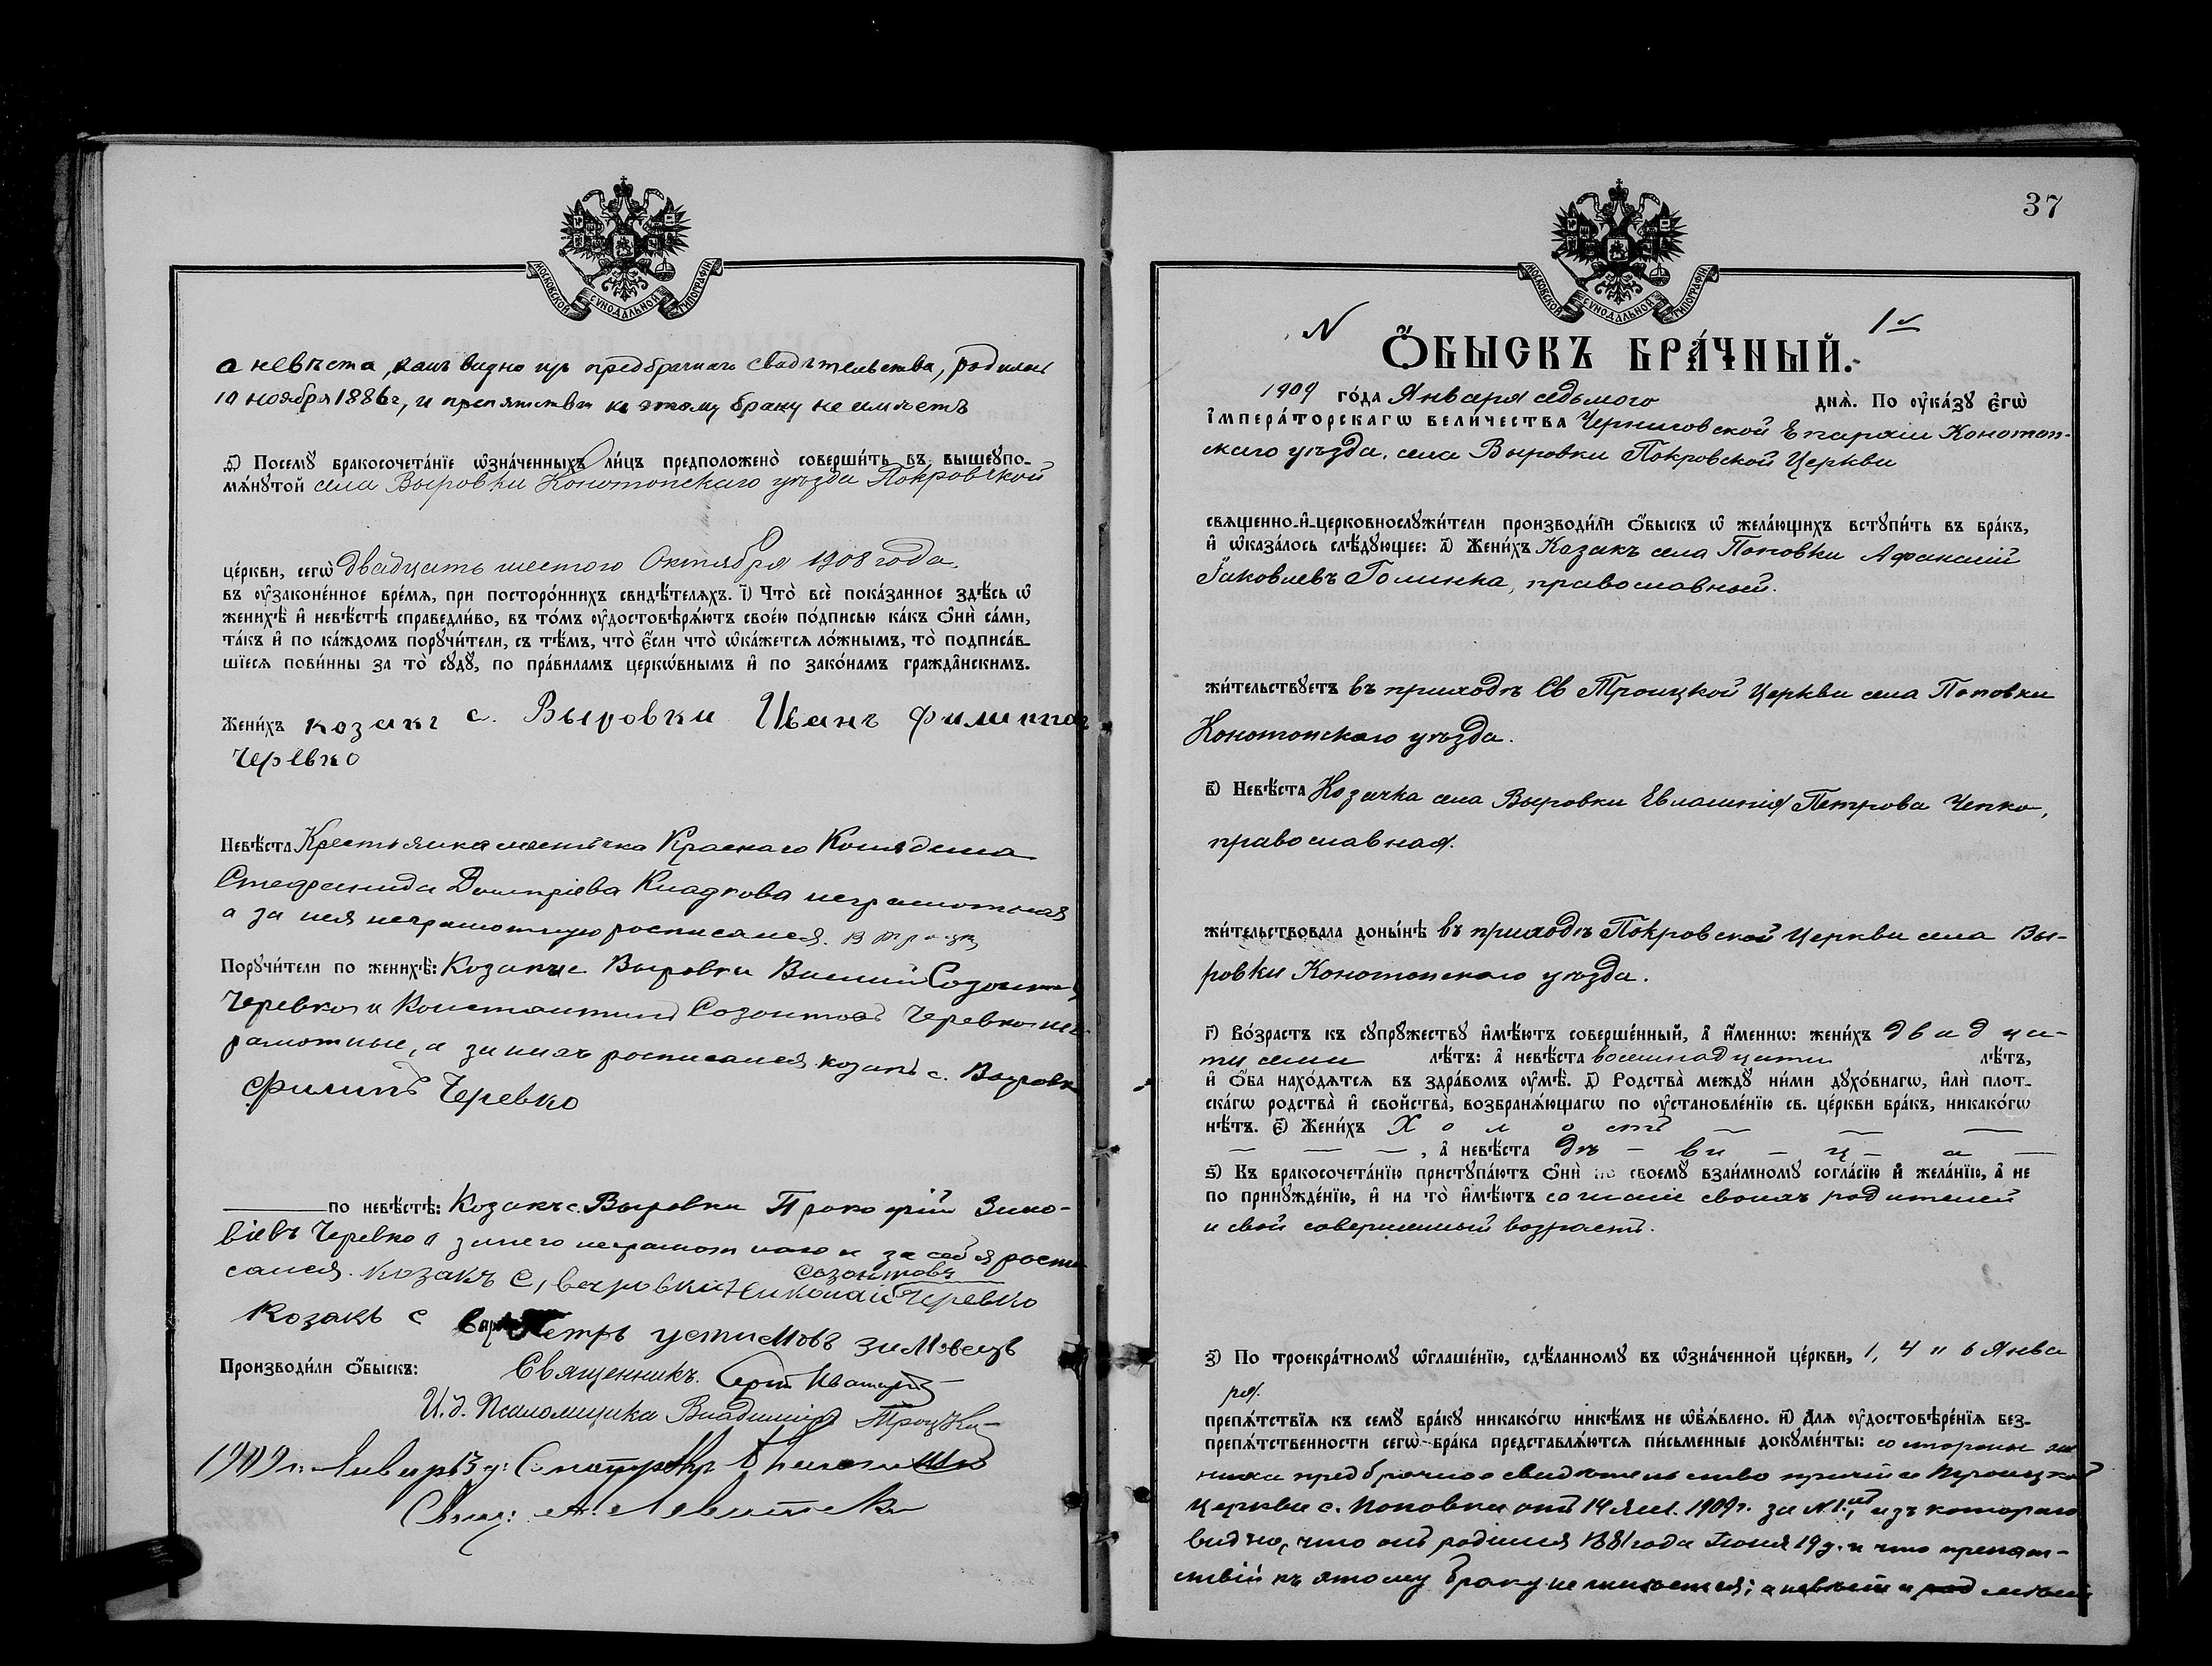 МОСКОВСКОЙ СѴНОДАЛЬНОЙ ТИПОГРАФІИ
а невѣста, какъ видно изъ предбрачнаго свидѣтельства, родилась
10 ноября 1886 г, и препятствія къ этому браку не имѣетъ
д҃) Посемꙋ̀ бракосочета́нїе ѡ҆зна́ченныхъ ли́цъ предположено̀ соверши́ть въ вышеꙋпо-
мѧ́нꙋтой села Выровки Конотопскаго уѣзда Покровской
це́ркви, сегѡ̀ двадцать шестого Октября 1908 года
въ ᲂу҆зако́ненное вре́мѧ, при посторо́ннихъ свидѣ́телѧхъ. і҃) Что̀ всѐ пока́занное здѣ́сь ѡ҆
женихѣ̀ и҆ невѣ́стѣ справедли́во, въ то́мъ ᲂу҆достовѣрѧ́ютъ свое́ю по́дписью ка́къ ѻ҆нѝ са́ми,
та́къ и҆ по ка́ждомъ порꙋчи́тели, съ тѣ́мъ, что̀ є҆́сли что̀ ѡ҆ка́жетсѧ ло́жнымъ, то̀ подписа́в-
шїесѧ пови́нны за то̀ сꙋдꙋ̀, по пра́виламъ церко́внымъ и҆ по зако́намъ гражда́нскимъ.
Жени́хъ козакъ с. Выровки Иванъ Филиппов
Черевко
Невѣ́ста Крестьянка мѣстечка Краснаго Колядина
Стефанида Димтріева Кладкова неграмотная
а за нея неграмотную росписался. В Троцк
Порꙋчи́тели по женихѣ̀: Козаки с Выровки Василій Созонтов
Черевко и Константинъ Созонтовъ Черевко нег-
рамотные, а за нихъ росписался козакъ с. Выровки
Филипъ Черевко
по невѣ́стѣ: Козакъ с. Выровки Прокофій Зино-
віевъ Черевко а за него неграмотнаго и за себя роспи
сался. козакъ с, выровки Николай Созонтовъ Черевко
Козакъ с Петръ устимовъ зимовецъ
Производи́ли ѻ҆́быскъ: Священникъ
И.д. Псаломщика Владиміръ Троцкі
1909 г. Января 13 д.
Свящ: А. Левитскі
37
МОСКОВСКОЙ СѴНОДАЛЬНОЙ ТИПОГРАФІИ
N 1й
Ѻ҆́БЫСКЪ БРА́ЧНЫЙ.
1909 го́да Января седьмого днѧ̀. По ᲂу҆ка́зꙋ є҆гѡ̀
і҆мпера́торскагѡ вели́чества Черниговской Епархіи Конотоп-
скаго уѣзда, села Выровки Покровской Церкви
свѧще́нно-и҆-церковнослꙋжи́тели производи́ли ѻ҆́быскъ ѡ҆ жела́ющихъ встꙋпи́ть въ бра́къ,
и҆ ѡ҆каза́лось слѣ́дꙋющее: а҃) Жени́хъ Казакъ села Поповки Афанасій
Іаковлевъ Голинка, православный.
жи́тельствꙋетъ въ приходѣ Св Троицкой Церкви села Поповки
Конотопскаго уѣзда.
в҃) Невѣ́ста Козачка села Выровки Евлампія Петрова Чепко,
православная.
жи́тельствовала доны́нѣ въ приходѣ Покровской Церкви села Вы-
ровки Конотопскаго уѣзда.
г҃) Во́зрастъ къ сꙋпрꙋ́жествꙋ и҆мѣ́ютъ соверше́нный, а҆ и҆́менно: жени́хъ двадца-
ти семи лѣ́тъ: а҆ невѣ́ста восемнадцати лѣ́тъ,
и҆ ѻ҆́ба нахо́дѧтсѧ въ здра́вомъ ᲂу҆мѣ̀. д҃) Родства̀ междꙋ̀ ни́ми дꙋхо́внагѡ, и҆лѝ пло́т-
скагѡ родства̀ и҆ сво́йства, возбранѧ́ющагѡ по ᲂу҆становле́нїю св. це́ркви бра́къ, никако́гѡ
нѣ́тъ. є҃) Жени́хъ Холостъ — — —
— — —, а҆ невѣ́ста дѣ — ви — ц — а —
ѕ҃) Къ бракосочета́нїю пристꙋпа́ютъ ѻ҆нѝ по своемꙋ̀ взаи́мномꙋ согла́сїю и҆ жела́нїю, а҆ не
по принꙋжде́нїю, и҆ на то̀ и҆мѣ́ютъ согласіе своихъ родителей
и свой совершенный возрастъ.
з҃) По троекра́тномꙋ ѡ҆глаше́нїю, сдѣ́ланномꙋ въ ѡ҆зна́ченной це́ркви, 1, 4 и 6 Янва
ря.
препѧ́тствїѧ къ семꙋ̀ бра́кꙋ никако́гѡ никѣ́мъ не ѡ҆б̾ѧ́влено. и҃) Длѧ ᲂу҆достовѣре́нїѧ без-
препѧ́тственности сегѡ̀ бра́ка представлѧ́ютсѧ пи́сьменные докꙋме́нты: со стороны же
ниха предбрачное свидѣтельство причта Троицкой
церкви с. Поповки отъ 14 Янв. 1909 г. за № 1мъ, изъ котораго
видно, что онъ родился 1881 года Іюня 19 д. и что препят-
ствій къ этому браку не имѣется;